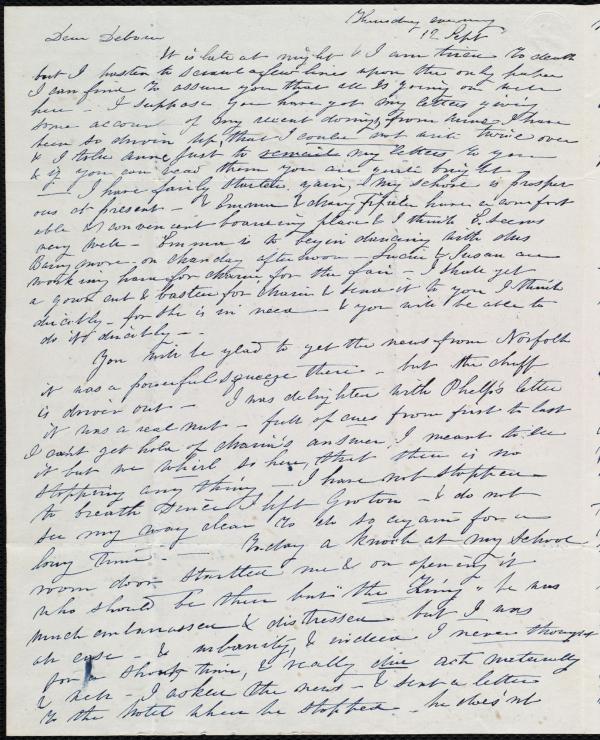 Thursday evening
12 Sept
Dear Debora
It is late at night & I am tired to death
but I hasten to scrawl a few lines upon the only paper
I can find to assure you that all is going on well
here - I suppose you have got my letters giving
some account of my recent doings, from home I have
been so driven up, that I could not write twice over
& I told Anne just to remail my letters to you
& if you can read them you are quite bright
- I have fairly started again, & my school is prosper
ous at present - & Emma & Mary have a comfort
able & convenient boarding place & I think E. seems
very well - Emma is to begin dancing with Miss
on Monday afternoon - Lucia & Susan are
working hard for Maria, for the fair - I shall get
a gown cut & basted for Maria & send it to you I think
directly - for she is in need - & you will be able to
do it directly -
You will be glad to get the news from Norfolk
it was a powerful squeeze there - but the chaff
is driven out - I was delighted with Phelps's letter
it was a real nut - full of from first to last
I cant get hold of Maria's answer, I meant to see
it but we whirl so here, that there is no
stopping any thing - I have not stopped
to breath since I left Groton - & do not
see my way clear to do so again for a
long time - Today a knock at my school
room door startled me & on opening it
who should be there but "the King" he was
much embarrassed & distressed but I was
at ease - & urbanity, & indeed I never thought
for a short time, & really did act naturally
& well - I asked the news - & sent a letter
to the hotel where he stopped - he does'nt